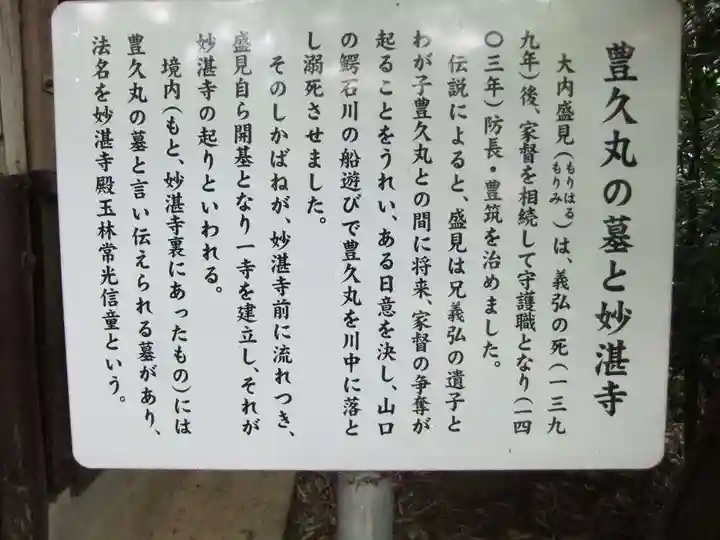 豊久丸の墓と妙湛寺
大内盛見(もりはるもりみ)は、義弘の死(一三九
九年)後、家督を相続して守護職となり(一四
〇三年)防長・豊筑を治めました。
伝説によると、盛見は兄義弘の遺子と
わが子豊久丸との間に将来、家督の争奪が
起ることをうれい、ある日意を決し、山口
の鰐石川の船遊びで豊久丸を川中に落と
し溺死させました。
そのしかばねが、妙湛寺前に流れつき、
盛見自ら開基となり一寺を建立し、それが
妙湛寺の起りといわれる。
境内(もと、妙湛寺裏にあったもの)には
豊久丸の墓と言い伝えられる墓があり、
法名を妙湛寺殿玉林常光信童という。